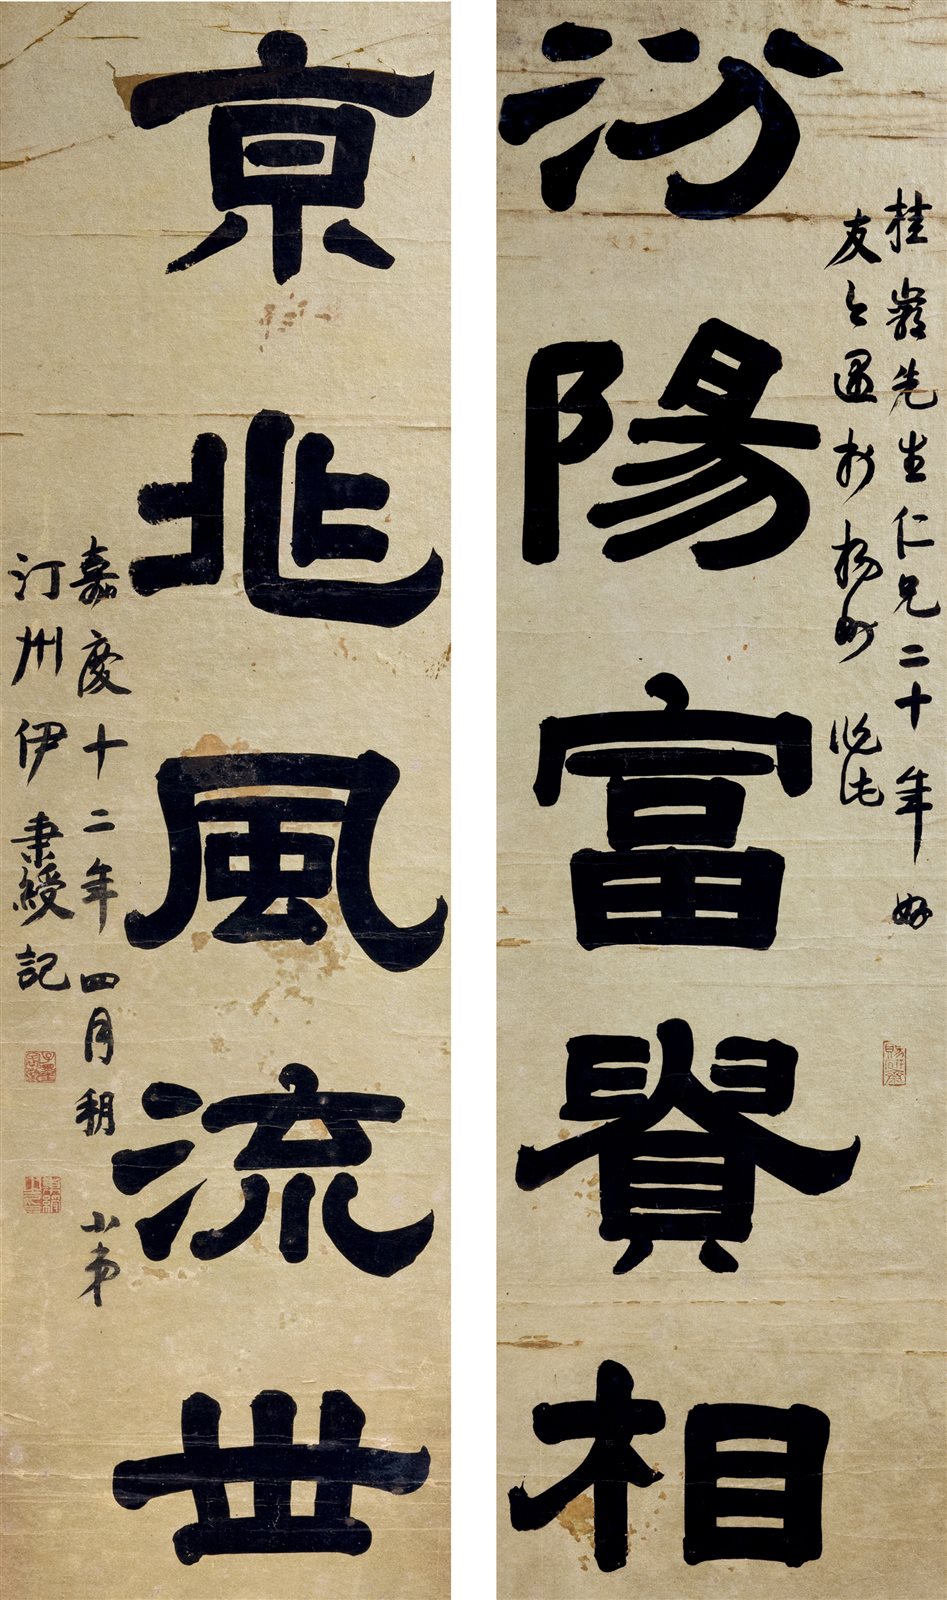 桂巖先生仁兄二十年好
友今遇於揚州 脱
汾陽富貴相
京兆風流世
嘉慶十二年四月朔 小弟
汀州伊秉綬記